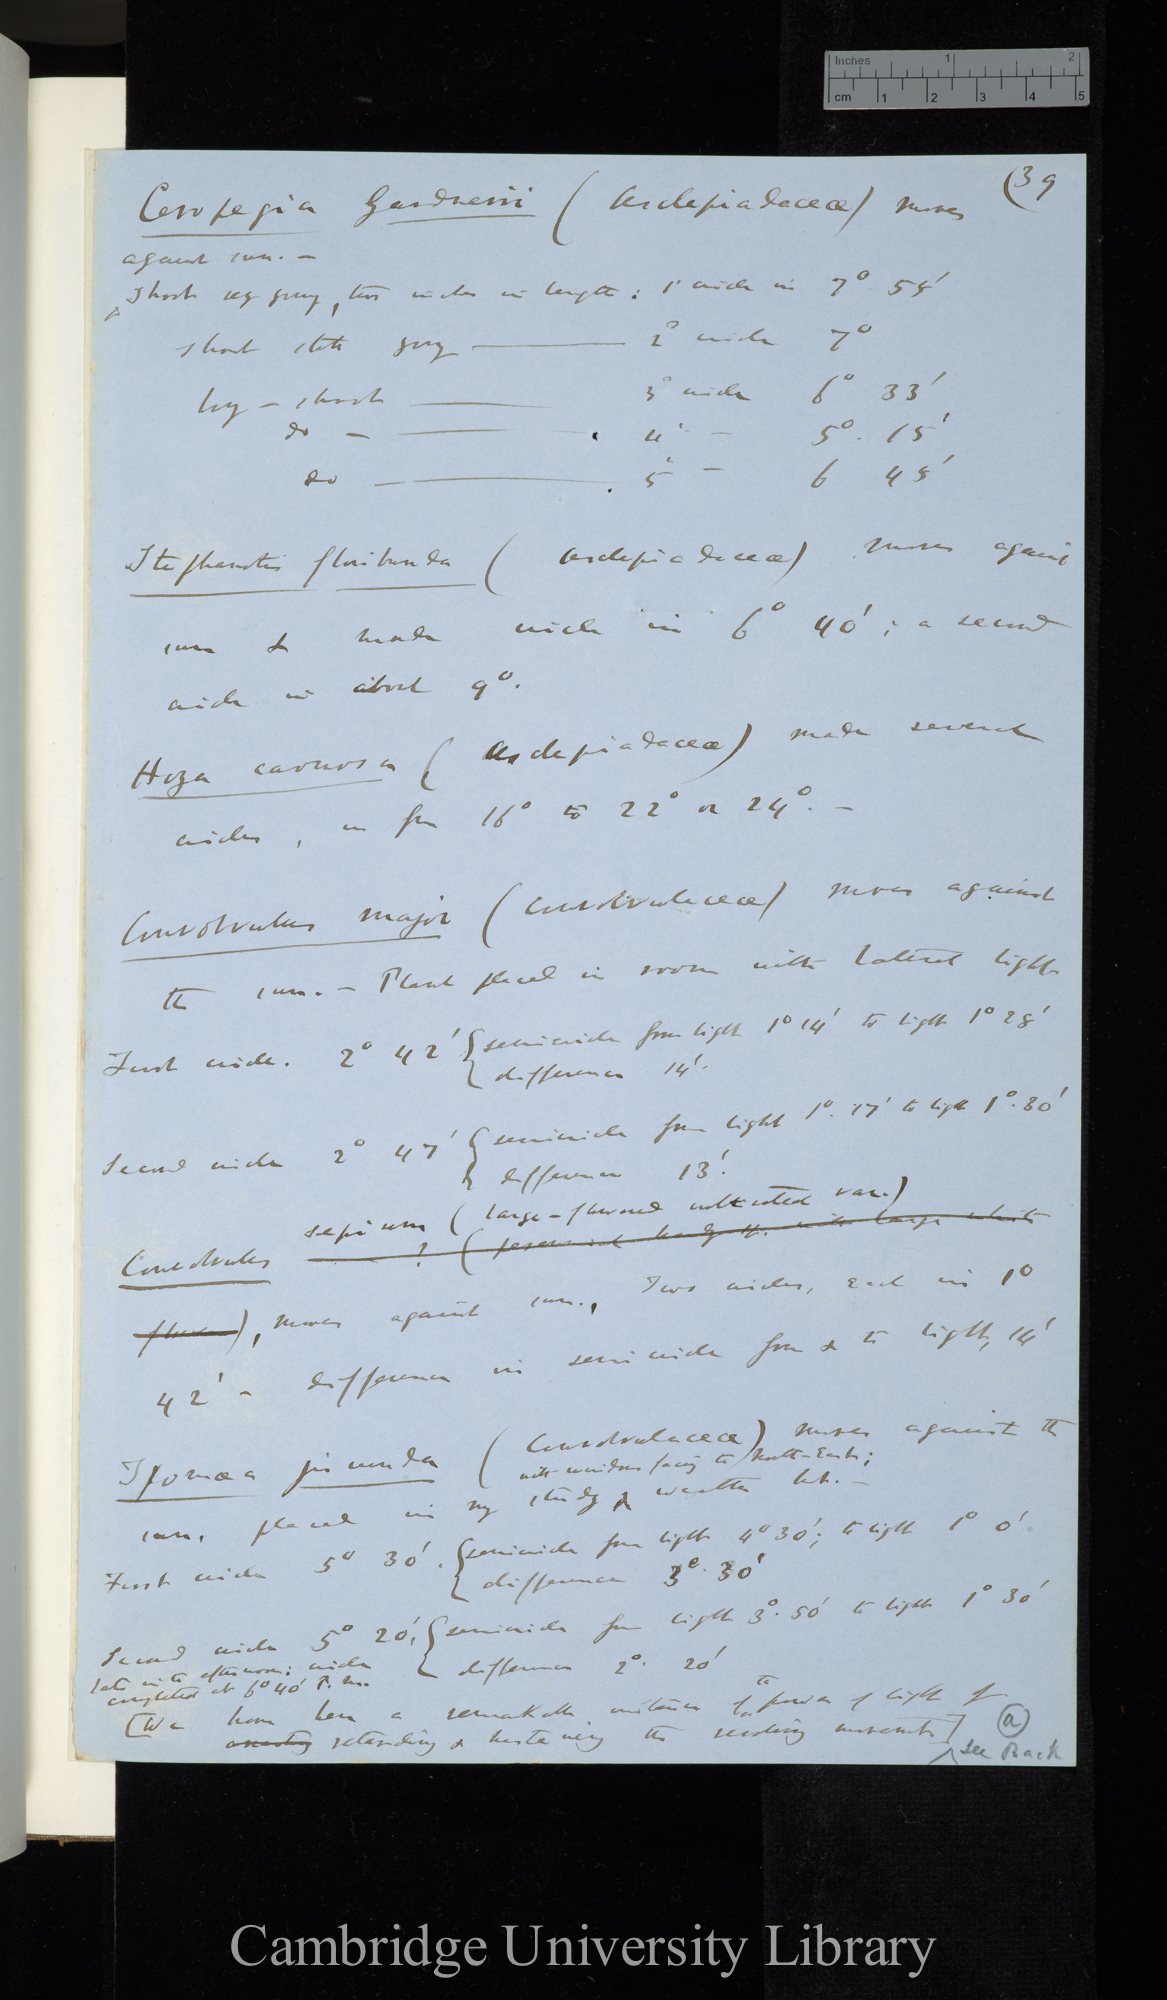 Inches 1 2
cm 1 2 3 4 5
(39
Ceropegia Gardnerii (Asclepiadaceæ) moves
against sun. —
Shoot very young, two inches in length: 1st circle in 7° 55'
shoot still young — 2d circle 7°
long - shoot — 3d circle 6° 33'
do — 4th — 5°. 15'
do — 5th — 6 45'
Stephanotis floribunda (Asclepiadaceæ) moves against
sun & made circle in 6° 40'; a second
circle in about 9°.
Hoya carnosa (Asclepiadaceæ) made several
circles, in from 16° to 22° or 24°. —
Convolvulus major (Convolvulaceæ) moves against
the sun. — Plant placed in room with lateral light
First circle. 2° 42' { semicircle from light 1° 14' to light 1° 28'
difference 14'.
Second circle 2° 47' { semicircle from light 1°. 17' to light 1°. 30'
difference 13'.
sepium (large-flowered cultivated var.)
Convolvulus ? ( with large white
flower), moves against sun., Two circles, each in 1°
42' - difference in semicircle from & to light, 14'
Ipomæa jucunda (Convolvulaceæ) moves against the
with windows facing to North-East;
sun, placed in my study & weather hot. —
First circle 5° 30'. { semicircle from light 4° 30'; to light 1° 0'
difference 3°. 30'
Second circle 5° 20', { semicircle from light 3°. 50' to light 1° 30'
late in the afternoon: circle
difference 2°. 20'
completed at 6° 40' P.m.
[We have here a remarkable instance of the power of light of
retarding & hastening the revolving movement] (a)
see Back
Cambridge University Library